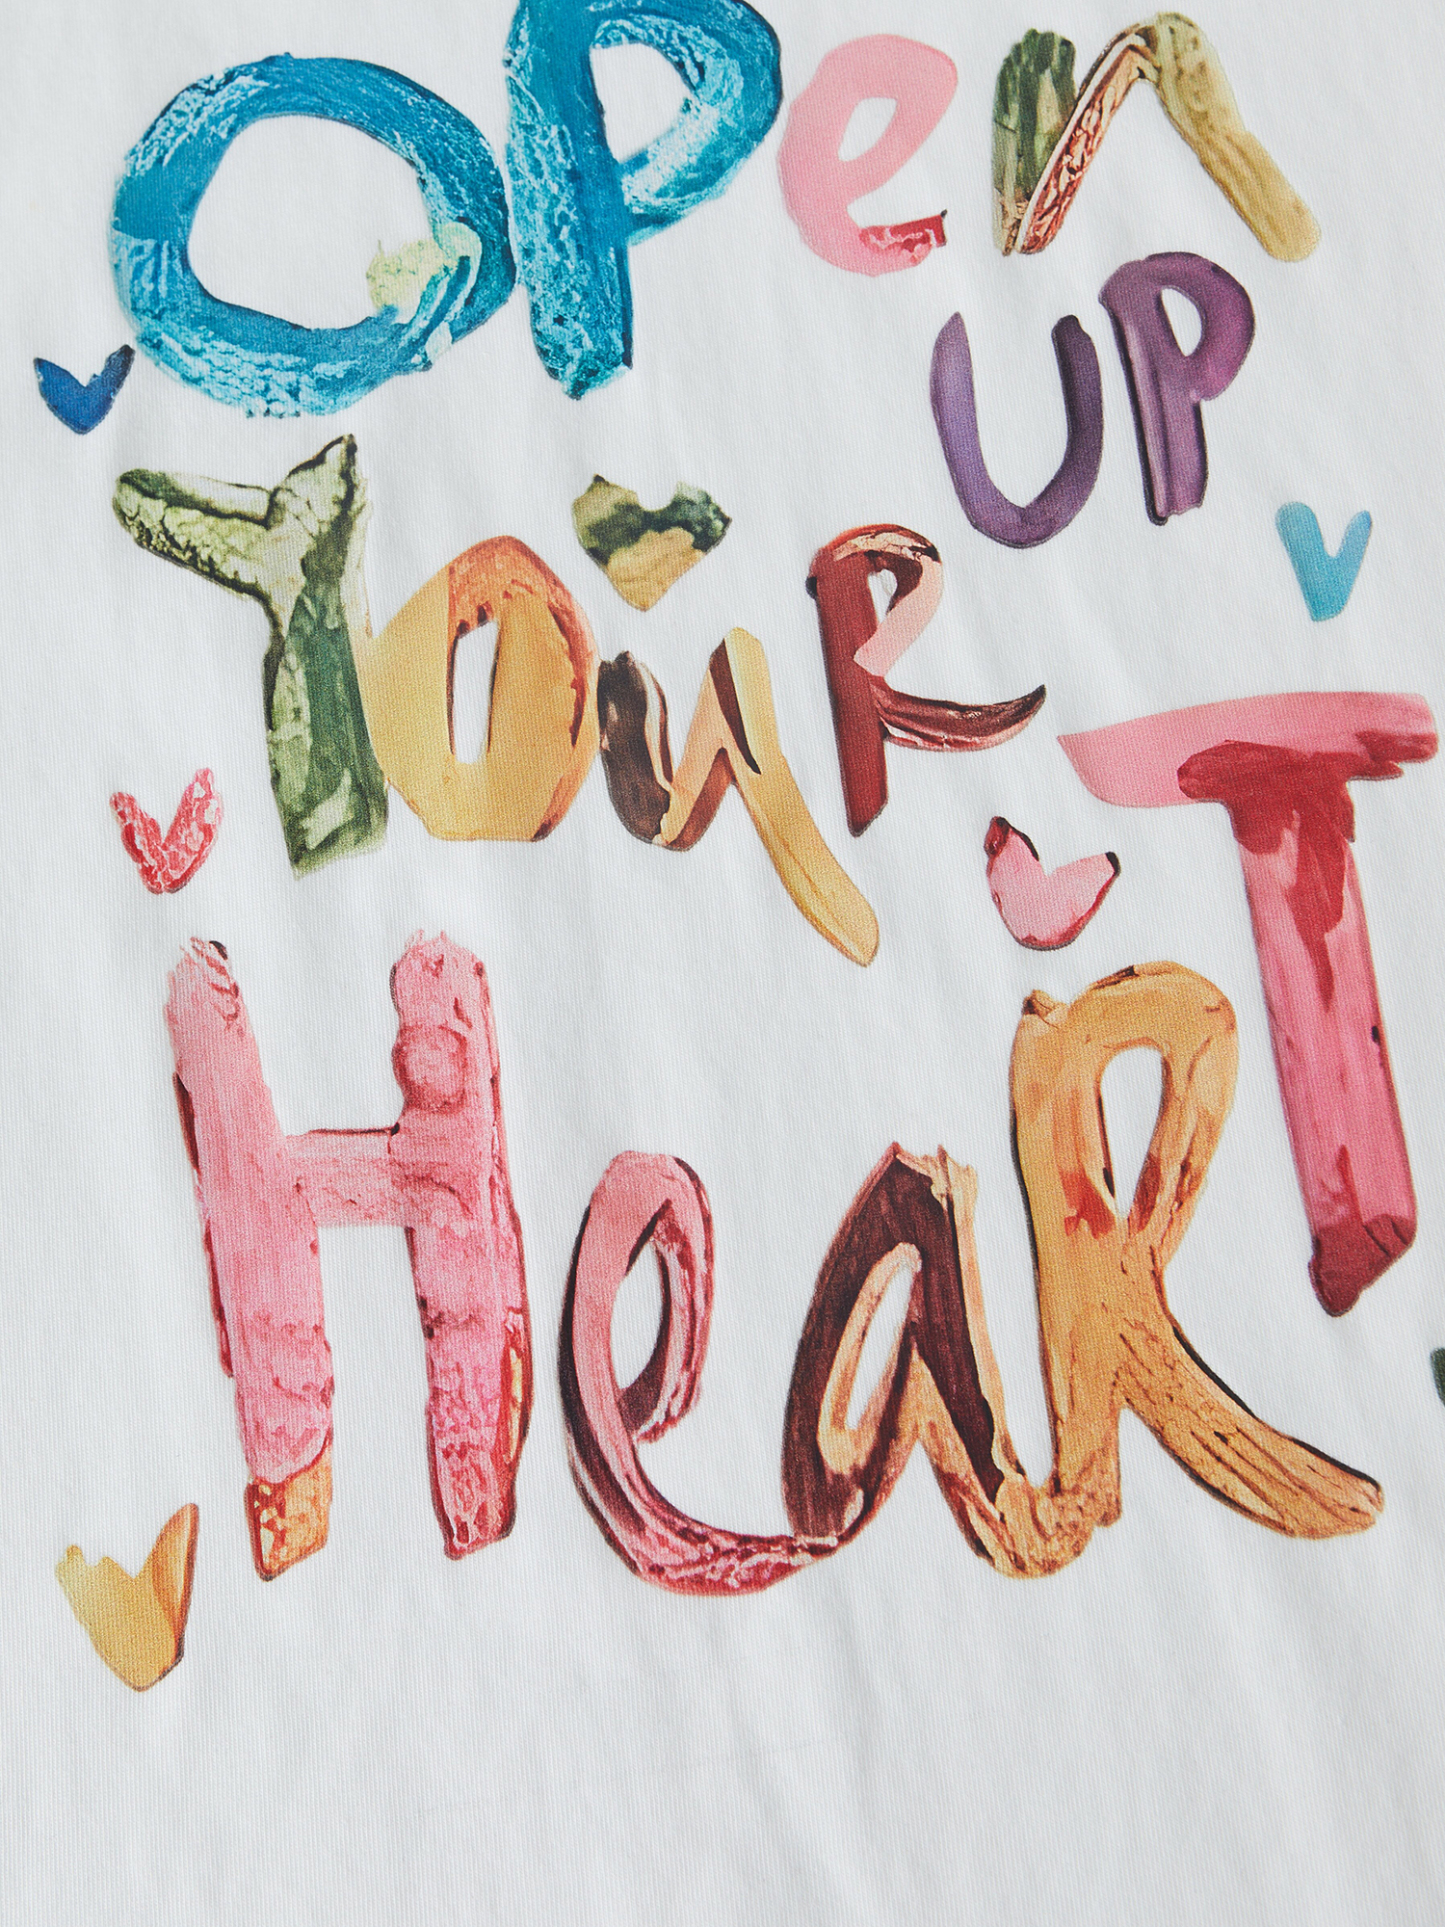 Open
UP
YOuR
HeaRT